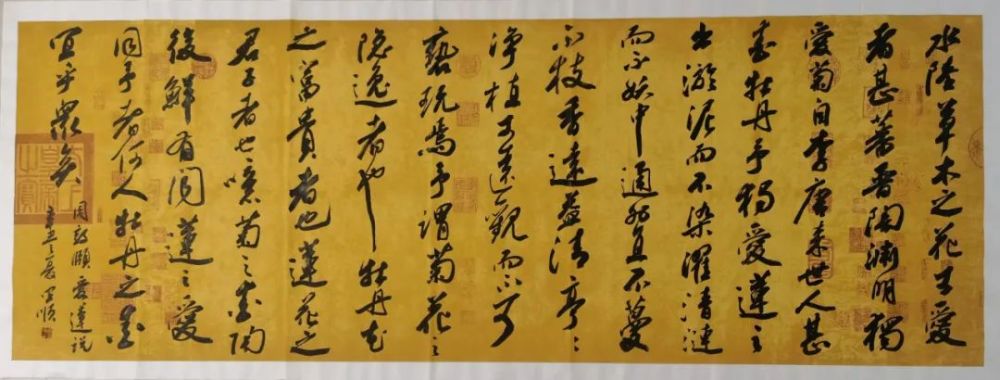 水陸草木之花可愛
者甚蕃晋陶渊明獨
愛菊自李唐来世人甚
愛牡丹予獨愛蓮之
出淤泥而不染濯清漣
而不妖中通外直不蔓
不枝香遠益清亭〻
淨植可遠觀而不可
褻玩焉予謂菊花之
隐逸者也牡丹花
之富貴者也蓮花之
君子者也噫菊之愛陶
後鮮有闻蓮之愛
同予者何人牡丹之愛
宜乎衆矣
周敦頤愛蓮説
順